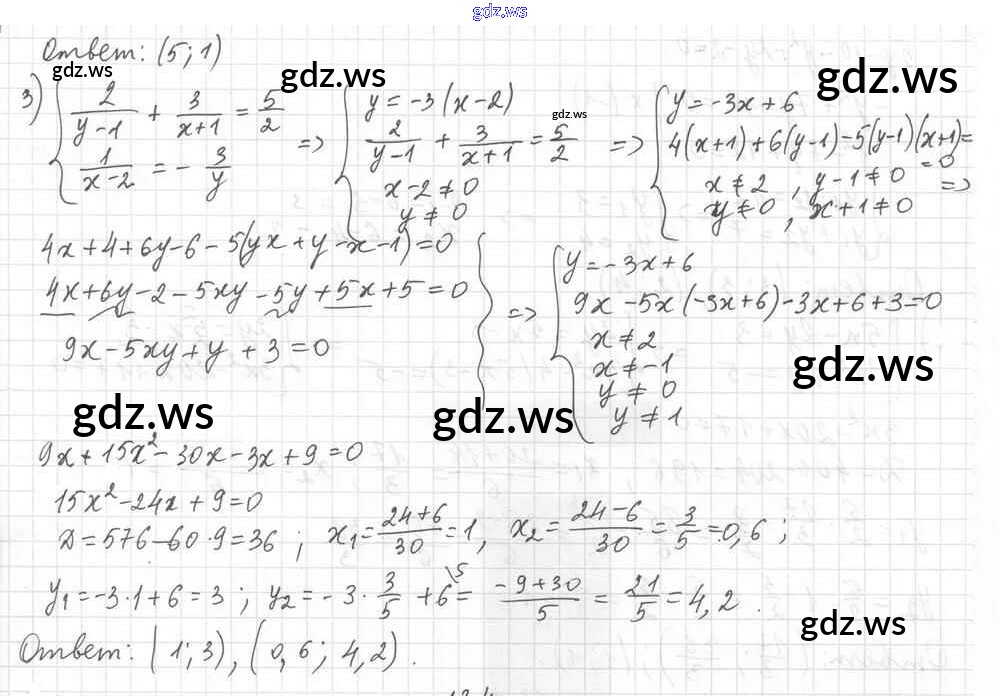 gdz.ws
Ответ: (5; 1)
gdz.ws
gdz.ws
gdz.ws
3) { 2/(y-1) + 3/(x+1) = 5/2
1/(x-2) = - 3/y
=> { y = -3(x-2)
gdz.ws
2/(y-1) + 3/(x+1) = 5/2
x-2 ≠ 0
y ≠ 0
=> { y = -3x+6
4(x+1)+6(y-1)-5(y-1)(x+1)=
= 0
x ≠ 2, y-1 ≠ 0
y ≠ 0, x+1 ≠ 0
=>
4x+4+6y-6-5(yx+y-x-1)=0
4x+6y-2-5xy-5y+5x+5=0
9x-5xy+y+3=0
=> { y = -3x+6
9x-5x(-3x+6)-3x+6+3=0
x ≠ 2
x ≠ -1
y ≠ 0
y ≠ 1
gdz.ws
gdz.ws
gdz.ws
9x+15x²-30x-3x+9=0
15x²-24x+9=0
D=576-60·9=36; x₁=(24+6)/30=1, x₂=(24-6)/30=3/5=0,6;
y₁=-3·1+6=3; y₂=-3·3/5+6\5=(-9+30)/5=21/5=4,2.
gdz.ws
Ответ: (1; 3), (0,6; 4,2).